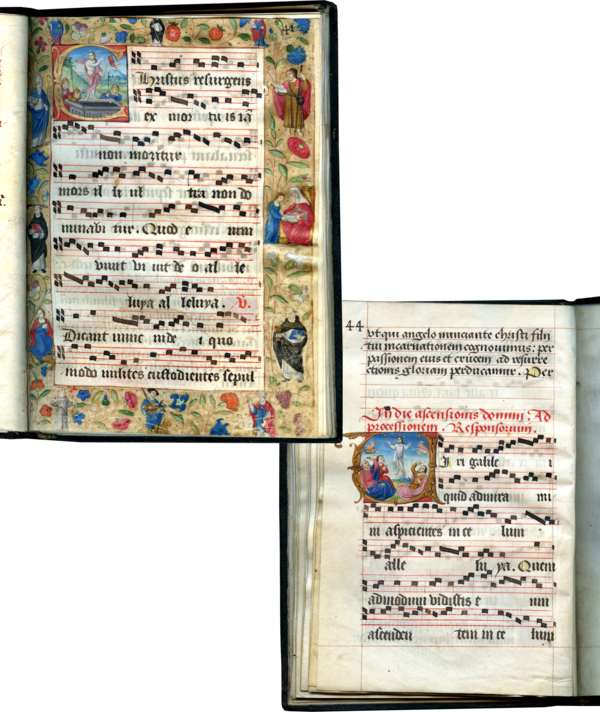 41
Christus resurgens
ex mor tu is iā
non moritur
mors il li ul tra non do
minabi tur. Quod e nim
vivit vi uit de o al le
luya al leluya. V.
Dicant nunc iude i quo
modo milites custodientes sepul
44
Vt qui angelo nunciante christi filii
tui incarnationem cognouimus: per
passionem eius et crucem ad resurre
ctionis gloriam perducamur. Per
In die ascensionis domini: Ad
processionem. Responsorium.
Viri galile i
quid admira mi
ni aspicientes in ce lum
alle lu ya. Quem
admodum vidistis e um
ascenden tem in ce lum